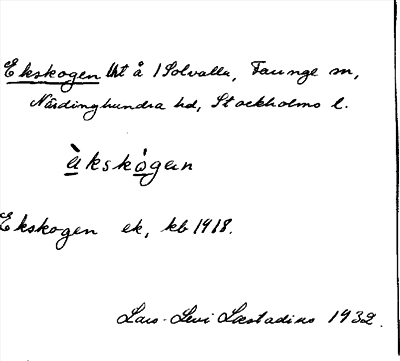 Ekskogen Ut å 1 Solvalla, Faunge sn,
Närdinghundra hd, Stockholms l.
ä̀kskó̱gan
Ekskogen ek, kb 1918.
Lars-Levi Læstadius 1932.